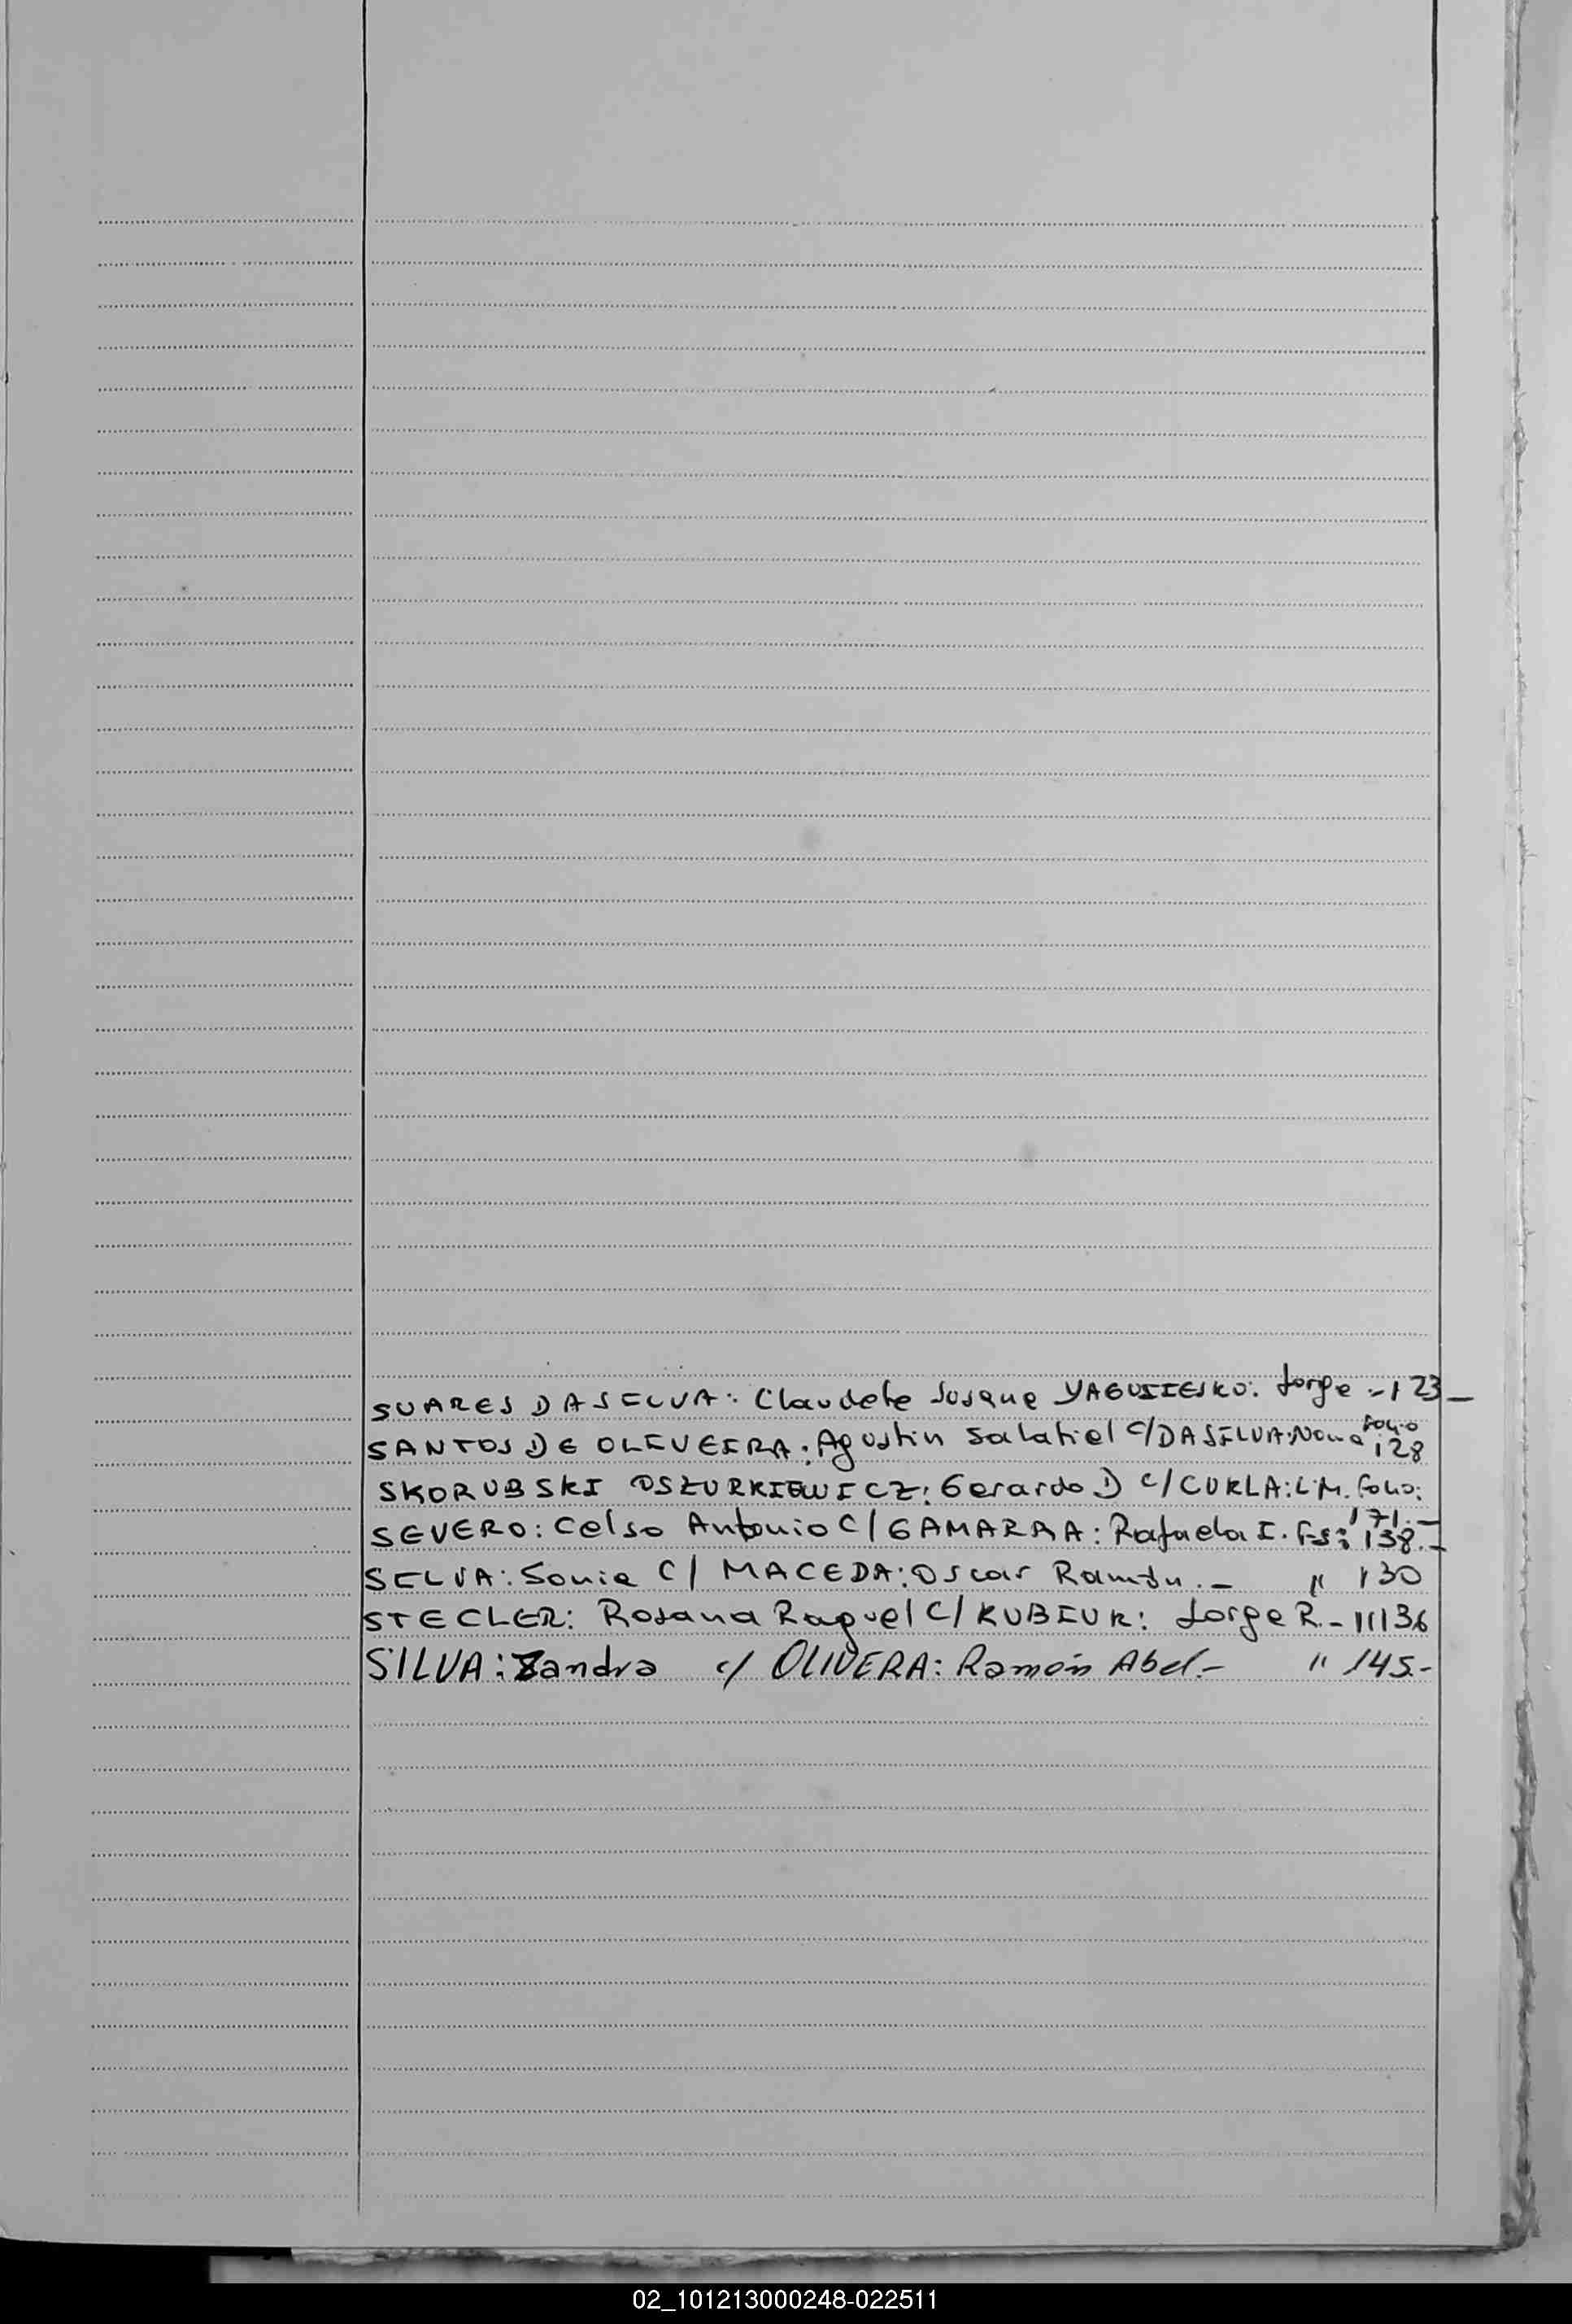 SUARES DA SILVA: Claudete Josane YAGUSIESKO: Jorge .-123_
SANTOS DE OLIVEIRA: Agustin Salatiel C/DA SILVA: Nova folio 128
SKORUBSKI OSZURKIEWICZ: Gerardo D C/CURLA: L.M. folio: 171.-
SEVERO: Celso Antonio C/ GAMARRA: Rafaela I. Fs: 138.-
SILVA: Sonia C/ MACEDA: Oscar Ramón.- " 130
STECLER: Rosana Raquel C/ KUBIUK: Jorge R.- " 136
SILVA: Zandra c/ OLIVERA: Ramón Abel.- " 145.-
02_101213000248-022511